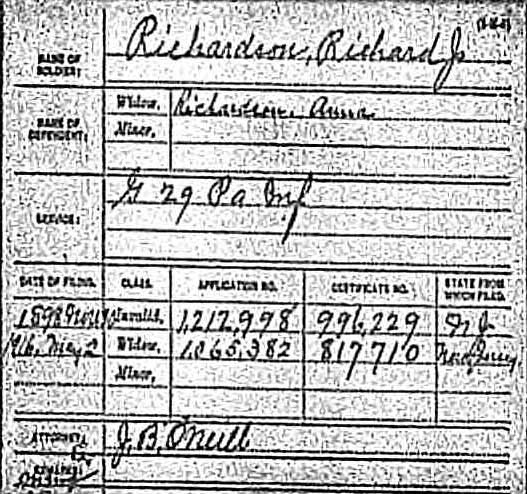 NAME OF SOLDIER: Richardson, Richard Jr
NAME OF DEPENDENT: Widow, Richardson, Anna
Minor,
SERVICE: G 29 Pa Inf
DATE OF FILING. CLASS. APPLICATION NO. CERTIFICATE NO. STATE FROM WHICH FILED.
1898 Nov Invalid, 1,212,998 996,229 N J
Widow, 1,065,382 817,710 New Jersey
Minor,
ATTORNEY: J. B. O'Neill
REMARKS: